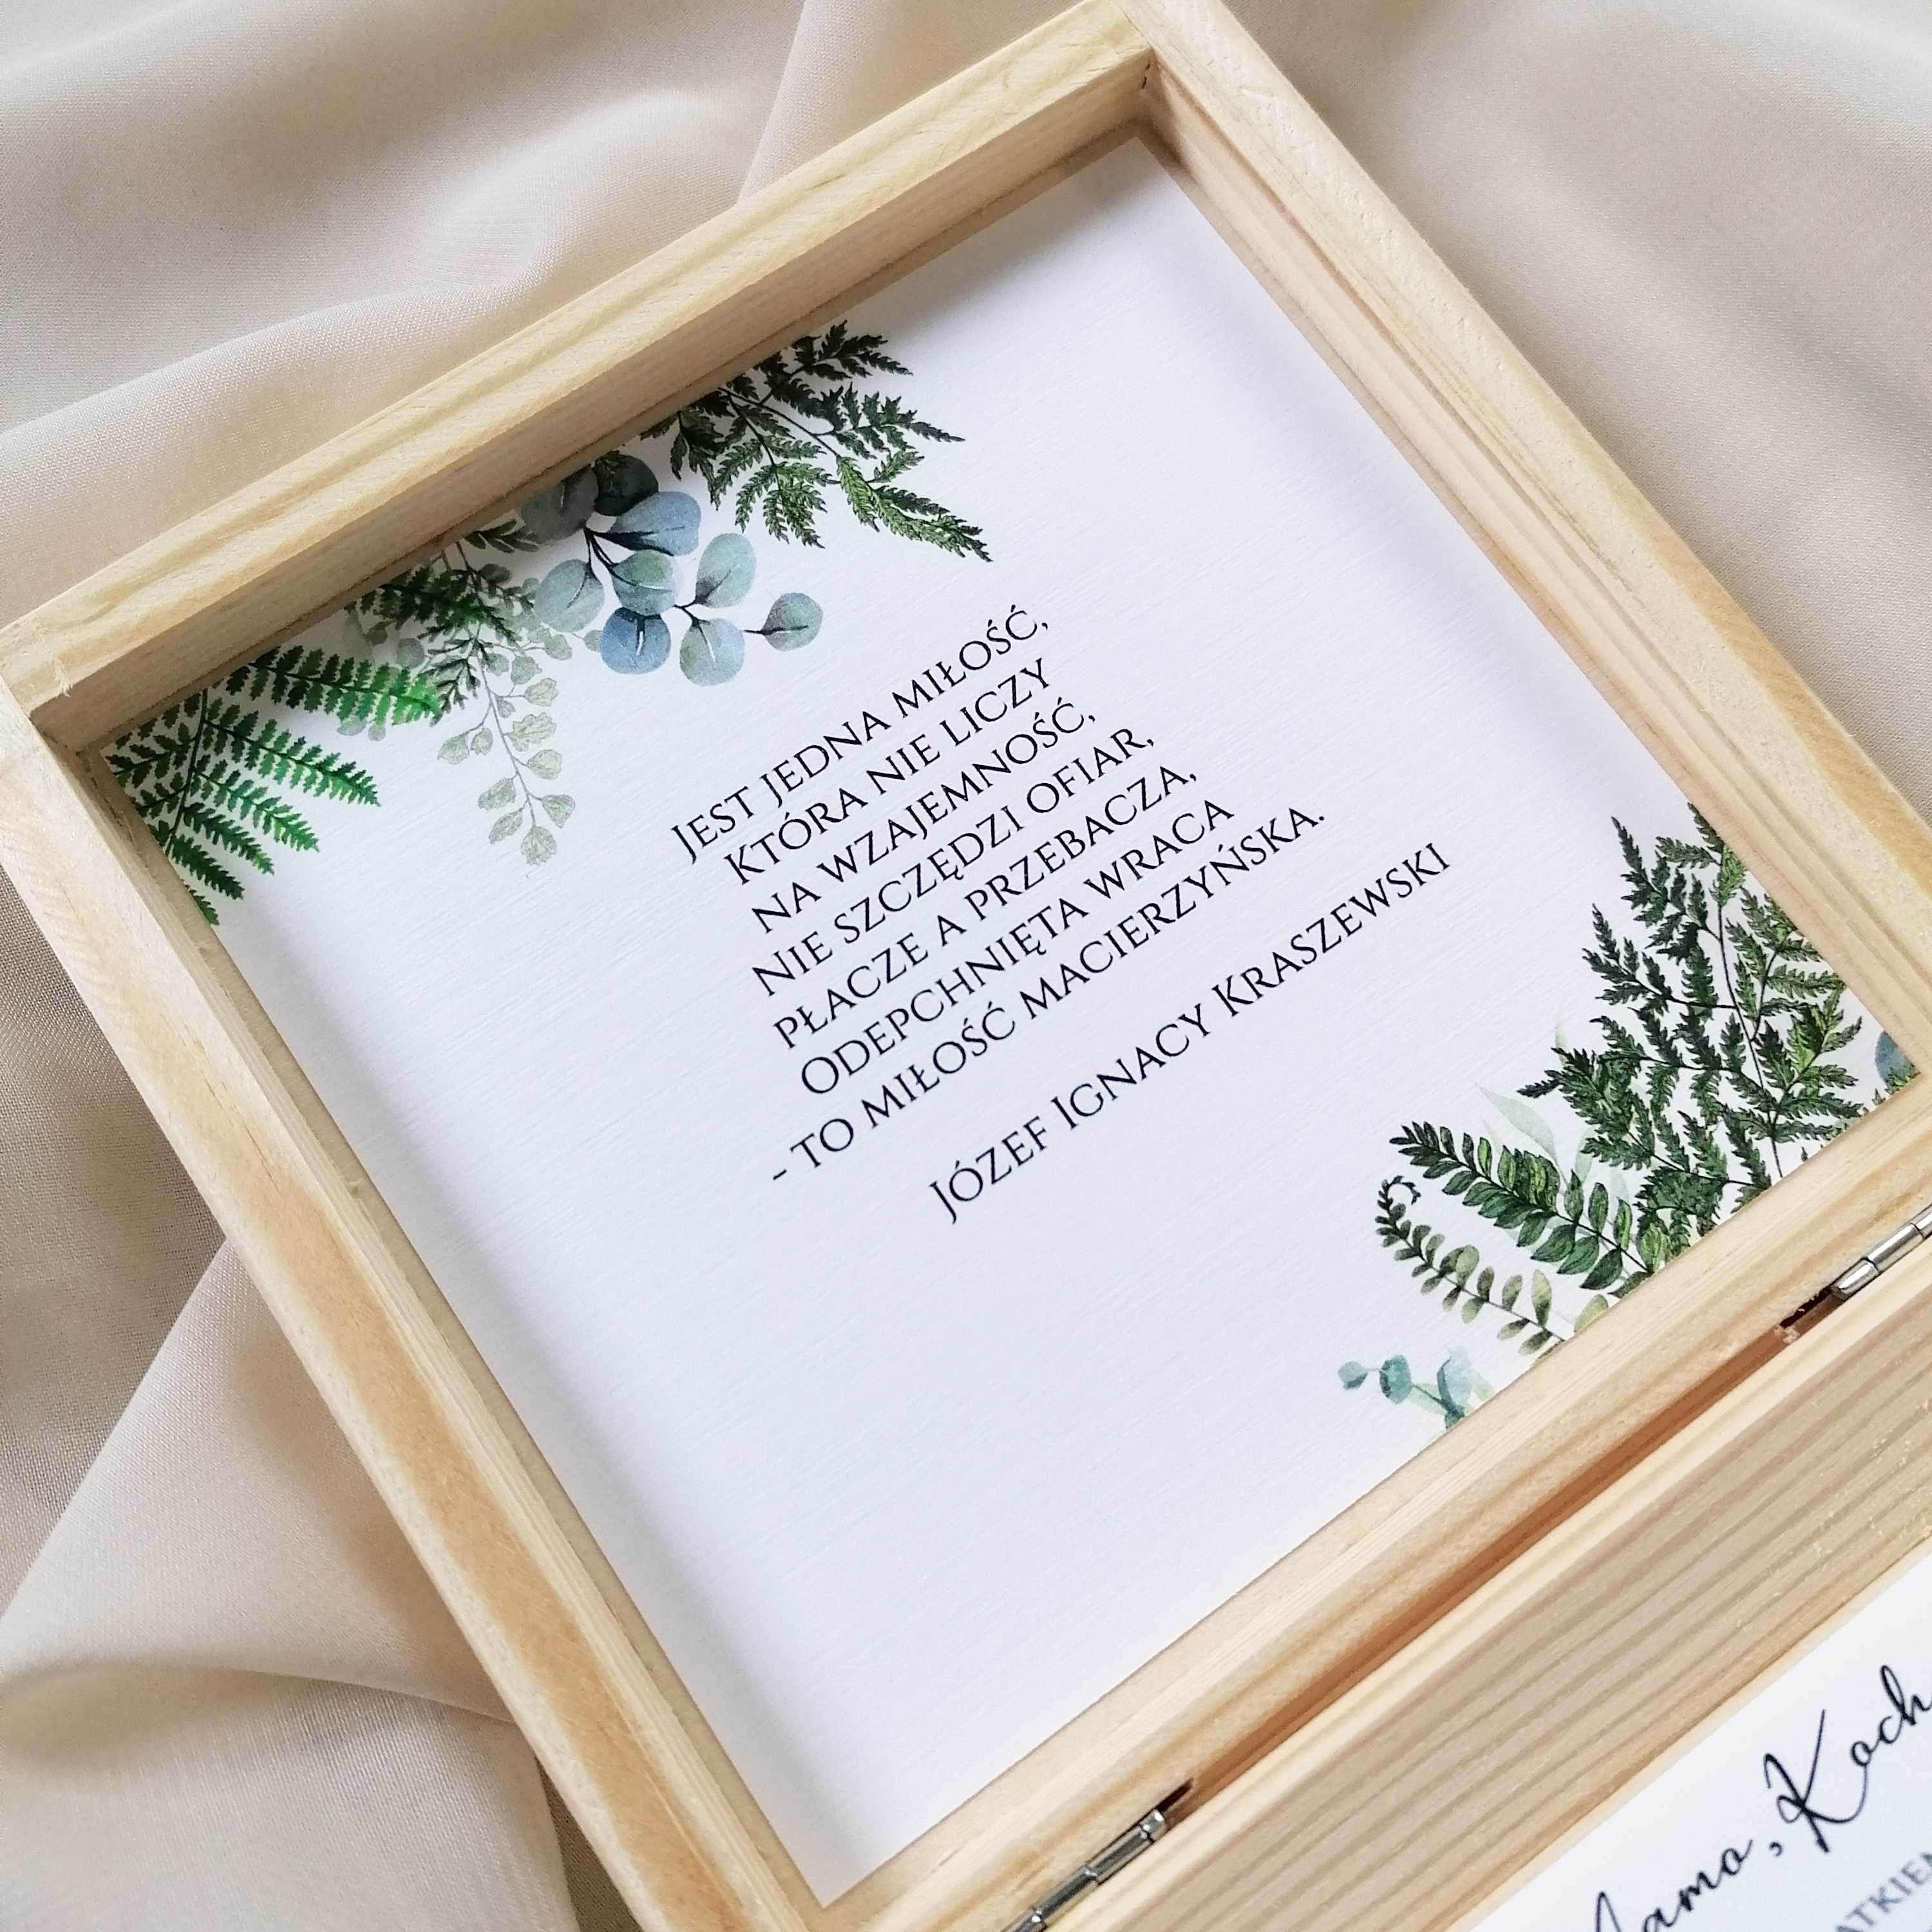 Jest jedna miłość,
która nie liczy
na wzajemność,
Nie szczędzi ofiar,
płacze a przebacza,
Odepchnięta wraca
- to miłość macierzyńska.
Józef Ignacy Kraszewski